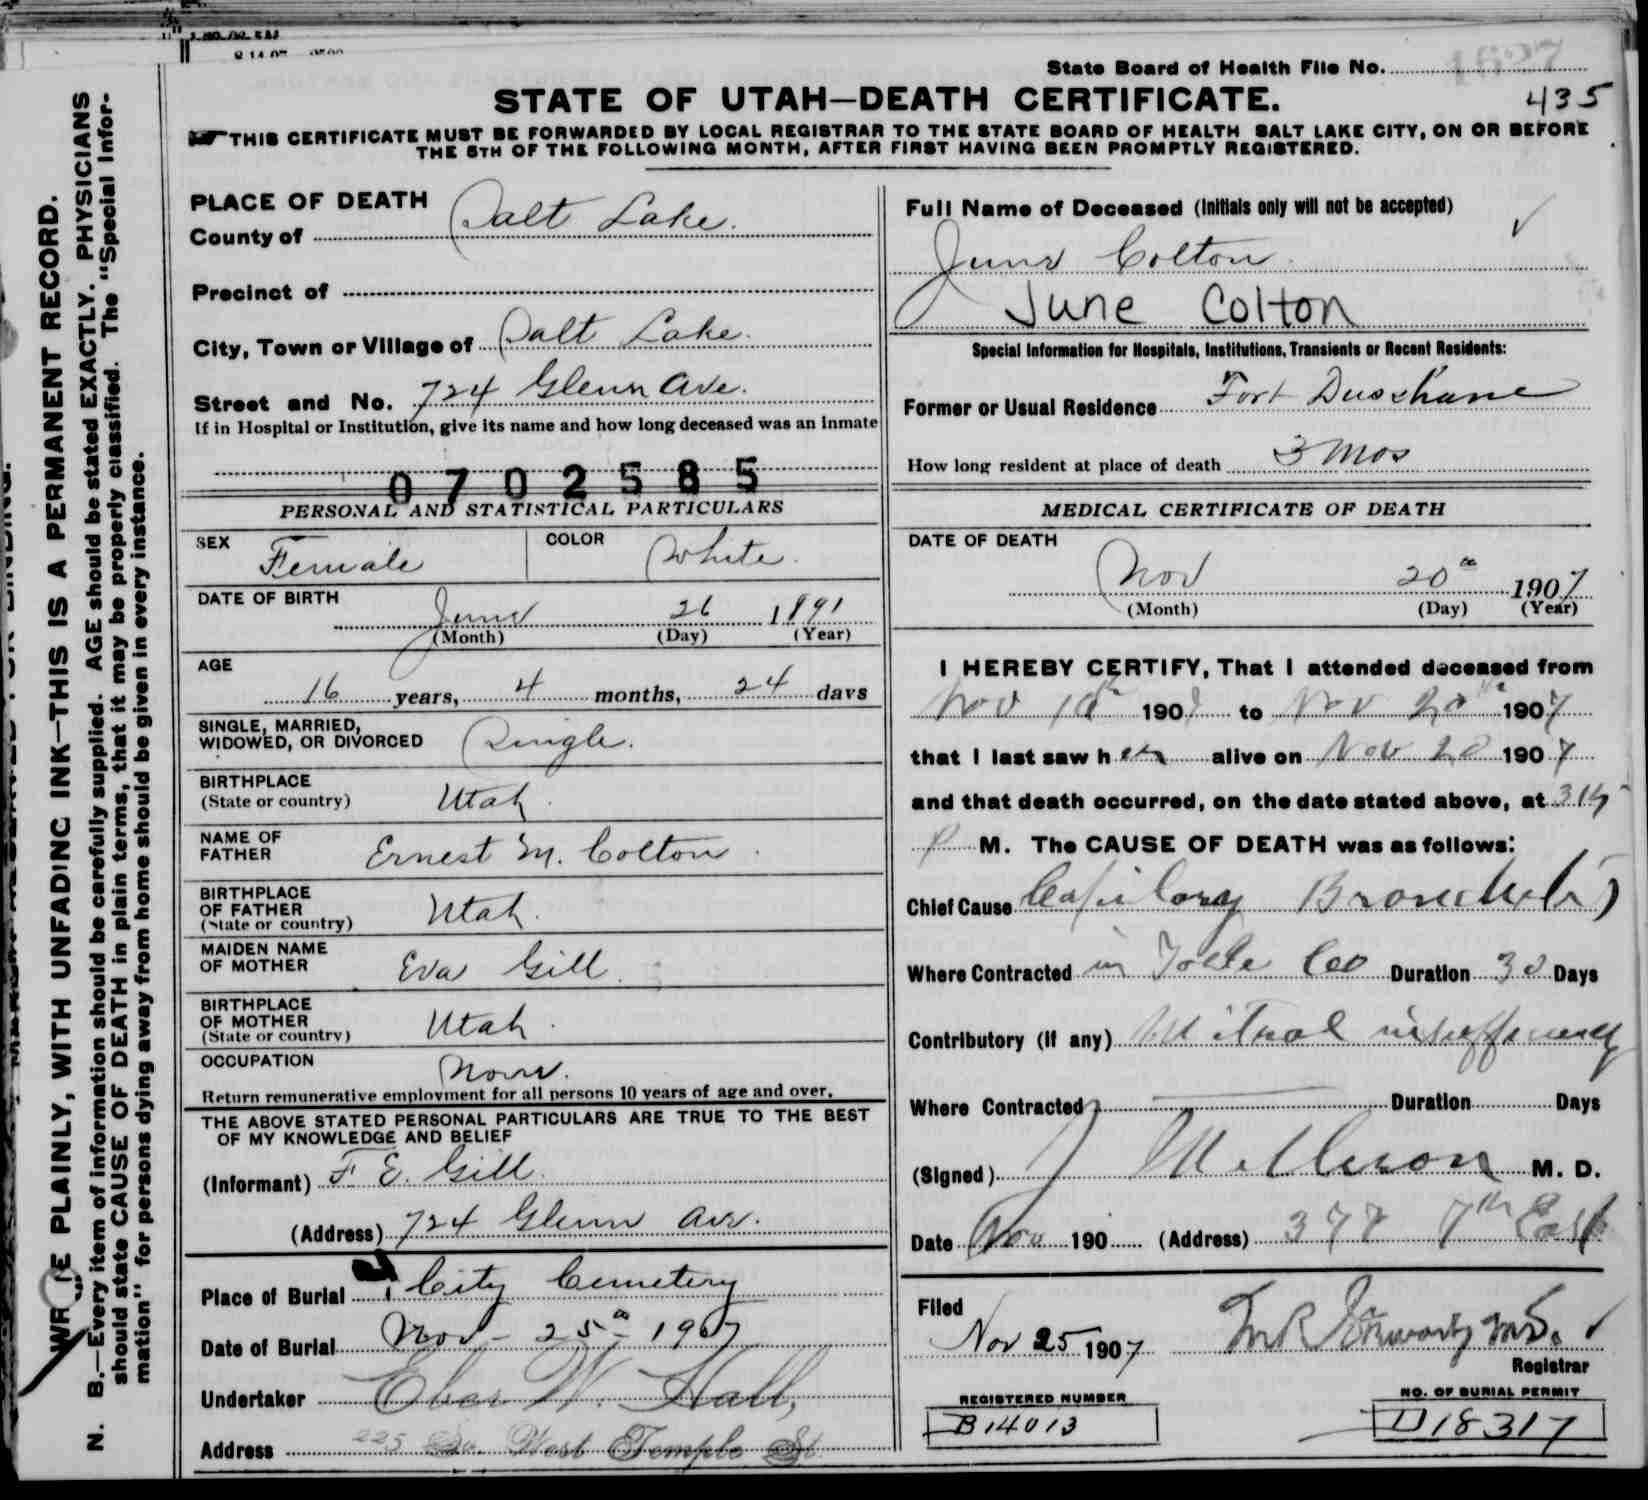 State Board of Health File No. 1837
STATE OF UTAH—DEATH CERTIFICATE.
435
THIS CERTIFICATE MUST BE FORWARDED BY LOCAL REGISTRAR TO THE STATE BOARD OF HEALTH SALT LAKE CITY, ON OR BEFORE
THE 5TH OF THE FOLLOWING MONTH, AFTER FIRST HAVING BEEN PROMPTLY REGISTERED.
WRITE PLAINLY, WITH UNFADING INK—THIS IS A PERMANENT RECORD.
N. B.—Every item of information should be carefully supplied. AGE should be stated EXACTLY. PHYSICIANS
should state CAUSE OF DEATH in plain terms, that it may be properly classified. The "Special Infor-
mation" for persons dying away from home should be given in every instance.
PLACE OF DEATH
County of Salt Lake.
Precinct of
City, Town or Village of Salt Lake.
Street and No. 724 Glenn Ave.
If in Hospital or Institution, give its name and how long deceased was an inmate
0702585
PERSONAL AND STATISTICAL PARTICULARS
SEX Female COLOR White.
DATE OF BIRTH
June 26 1891
(Month) (Day) (Year)
AGE
16 years, 4 months, 24 days
SINGLE, MARRIED,
WIDOWED, OR DIVORCED Single.
BIRTHPLACE
(State or country) Utah.
NAME OF
FATHER Ernest M. Colton.
BIRTHPLACE
OF FATHER
(State or country) Utah.
MAIDEN NAME
OF MOTHER Eva Gill.
BIRTHPLACE
OF MOTHER
(State or country) Utah.
OCCUPATION None.
Return remunerative employment for all persons 10 years of age and over.
THE ABOVE STATED PERSONAL PARTICULARS ARE TRUE TO THE BEST
OF MY KNOWLEDGE AND BELIEF
(Informant) F. E. Gill.
(Address) 724 Glenn Ave.
Place of Burial City Cemetery
Date of Burial Nov - 25th - 1907
Undertaker Eber W. Hall,
Address 225 So. West Temple St.
Full Name of Deceased (Initials only will not be accepted)
June Colton.
June Colton
Special Information for Hospitals, Institutions, Transients or Recent Residents:
Former or Usual Residence Fort Duschane
How long resident at place of death 3 Mos
MEDICAL CERTIFICATE OF DEATH
DATE OF DEATH
Nov 20th 1907
(Month) (Day) (Year)
I HEREBY CERTIFY, That I attended deceased from
Nov 1907 to Nov 20th 1907
that I last saw her alive on Nov 20 1907
and that death occurred, on the date stated above, at 315
P M. The CAUSE OF DEATH was as follows:
Chief Cause Capilary Bronchitis
Where Contracted in Toele Co Duration 30 Days
Contributory (if any) Mitral insufficiency
Where Contracted Duration Days
(Signed) M. D.
Date Nov 190 (Address) 377 7th East
Filed
Nov 25 1907
Registrar
REGISTERED NUMBER
B14013
NO. OF BURIAL PERMIT
D18317